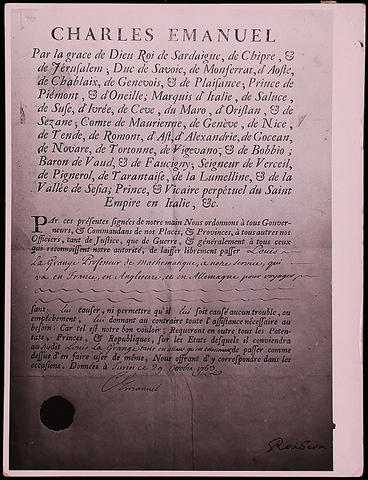 CHARLES EMANUEL
Par la grace de Dieu Roi de Sardaigne, de Chipre, &
de Jérusalem; Duc de Savoie, de Monferrat, d'Aoste,
de Chablaix, de Genevois, & de Plaisance; Prince de
Piémont, & d'Oneille; Marquis d'Italie, de Saluce,
de Suse, d'Ivrée, de Ceve, du Maro, d'Oristan, & de
Sezane; Comte de Maurienne, de Genève, de Nice,
de Tende, de Romont, d'Ast, d'Alexandrie, de Gocean,
de Novare, de Tortonne, de Vigevano; & de Bobbio;
Baron de Vaud, & de Faucigny; Seigneur de Verceil,
de Pignerol, de Tarantaise, de la Lumelline, & de la
Vallée de Sesia; Prince, & Vicaire perpétuel du Saint
Empire en Italie, &c.
PAr ces présentes signées de notre main Nous ordonnons à tous Gouver-
neurs, & Commandans de nos Places, & Provinces, à tous autres nos
Officiers, tant de Justice, que de Guerre, & généralement à tous ceux
qui reconnoissent notre autorité, de laisser librement passer Louis
La Grange Professeur de Mathématique, à notre service, qui
va en France, en Angleterre et en Allemagne pour voyager,
sans lui causer, ni permettre qu'il lui soit causé aucun trouble, ou
empêchement, lui donnant au contraire toute l'assistance nécessaire au
besoin: Car tel est notre bon vouloir; Requerons en outre tous les Poten-
tats, Princes, & Republiques, sur les Etats desquels il conviendra
audit Louis La Grange tant en allant qu'en de passer comme
dessus d'en faire user de même, Nous offrant d'y correspondre dans les
occasions. Données à Turin ce 29 Octobre 1763
C. Emanuel